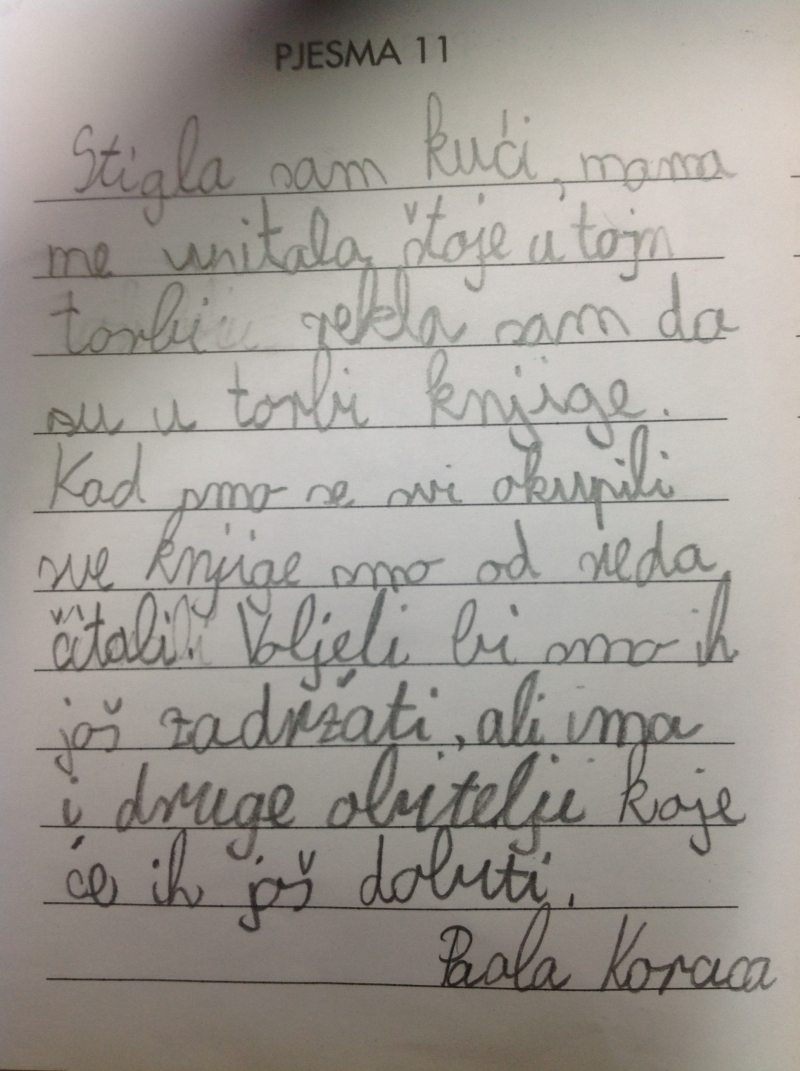 PJESMA 11
Stigla sam kući, mama
me unitala štoje u toj
torbi rekla sam da
su u torbi knjige.
Kad smo se svi okupili
sve knjige smo od reda
čitali. Voljeli bi smo ih
još zadržati, ali ima
i druge obitelji koje
će ih još dobiti.
Paola Koraca